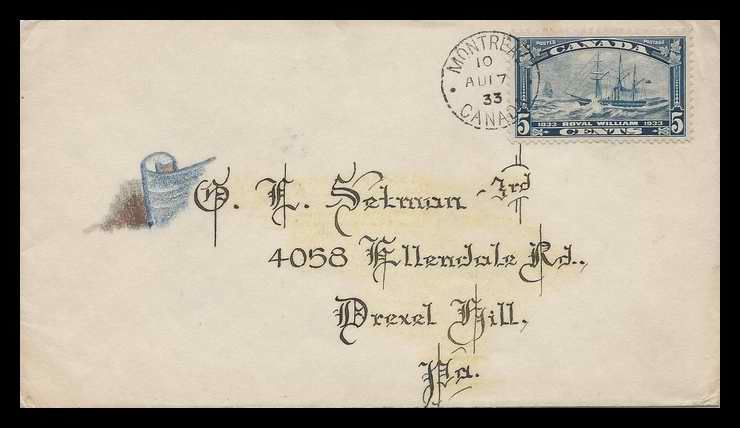 MONTREAL
10
AU 17
33
CANADA
POSTES POSTAGE
CANADA
1833 ROYAL WILLIAM 1933
5 CENTS 5
4058 Ellendale Rd.,
Drexel Hill,
Pa.
3rd